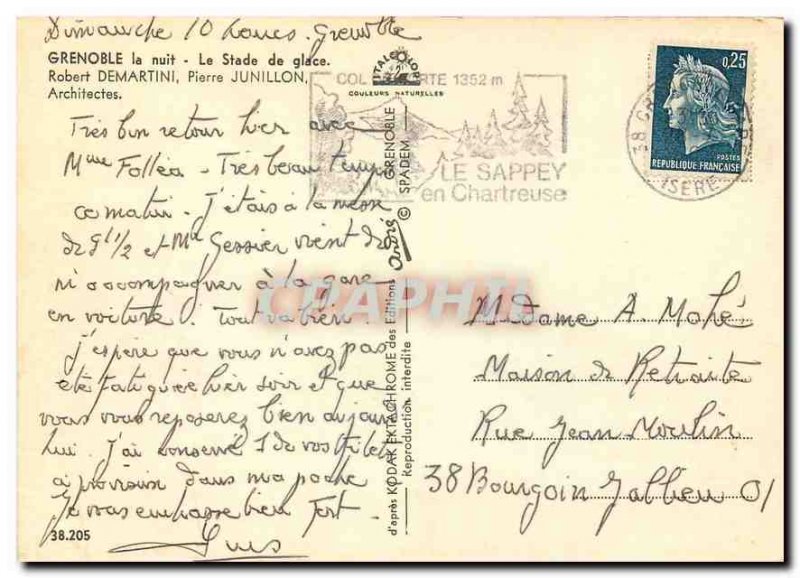 Dimanche 10 heures. Grenoble
GRENOBLE la nuit - Le Stade de glace.
Robert DEMARTINI, Pierre JUNILLON,
Architectes.
Très bon retour hier avec
Mme Folléa - Très beau temps
ce matin. J'étais à la messe
de 9h1/2 et Mr Gessier vient de
m'accompagner à la gare
en voiture. Tout va bien.
J'espère que vous n'avez pas
été fatiguée hier soir et que
vous vous reposerez bien aujourd
hui. J'ai conservé 1 de vos
à provision dans ma poche
Je vous embrasse bien fort.
38.205
ITALCOLOR
COULEURS NATURELLES
COL PORTE 1352 m
LE SAPPEY
en Chartreuse
GRENOBLE
© SPADEM
d'après KODAK EKTACHROME des Editions André
Reproduction interdite
CPAPHIL
0,25
POSTES
REPUBLIQUE FRANÇAISE
38 GR
ISERE
Madame A. Mohé
Maison de Retraite
Rue Jean Moulin
38 Bourgoin Jallieu 01